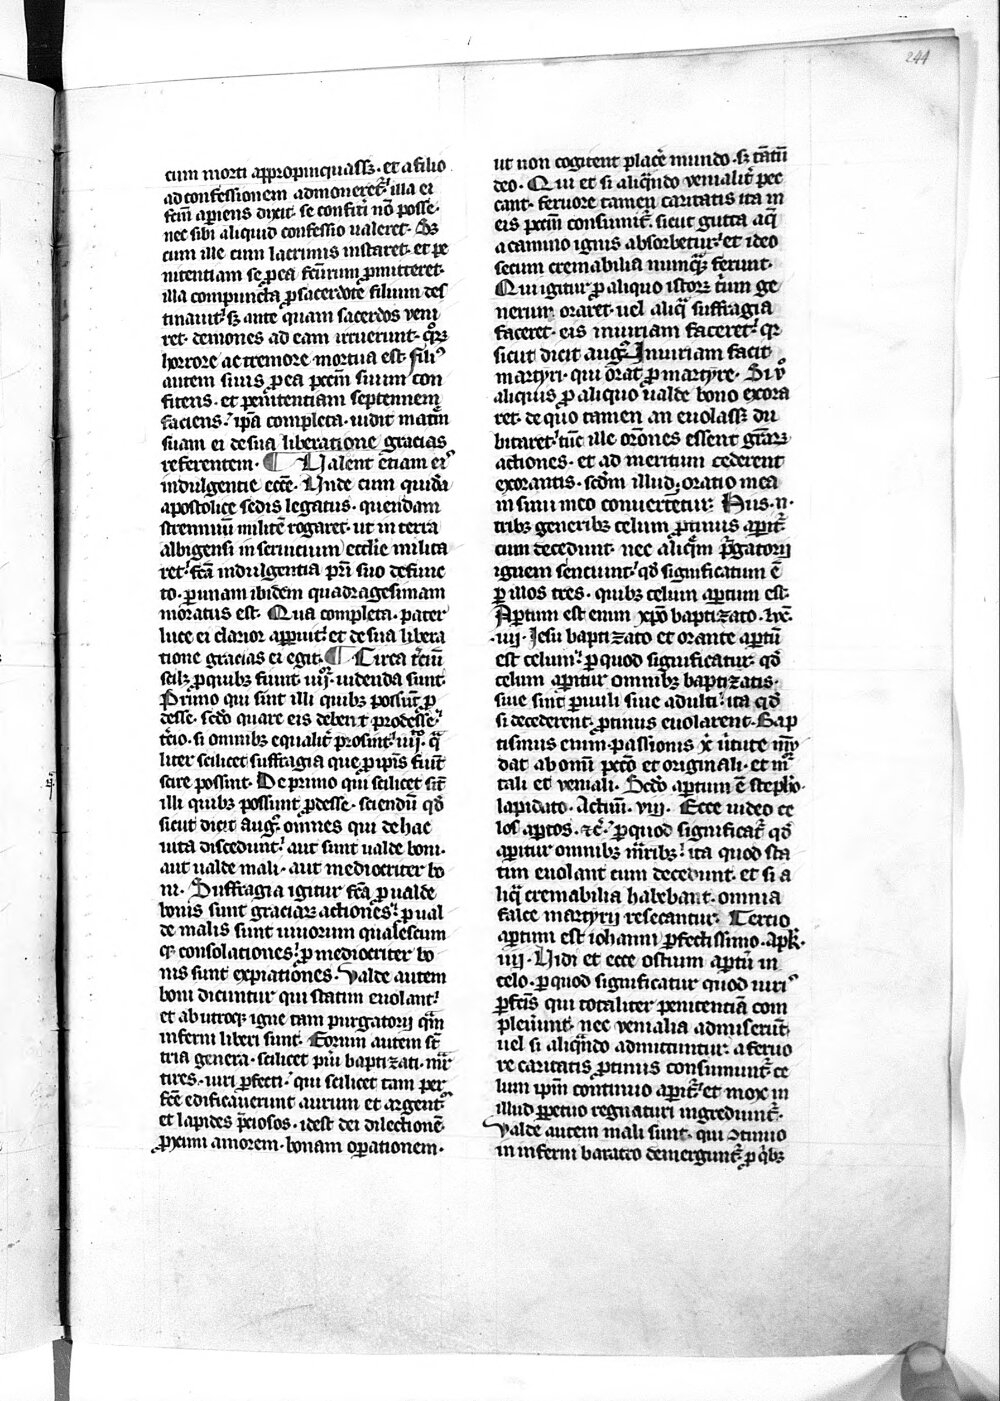 244
cum morti appropinquassꝫ · et a filio
ad confessionem admoneret᷑ illa ei
fcm̄ aperiens dixit · se confiteri nō posse ·
nec sibi aliquid confessio ualeret · Sꝫ
cum ille cum lacrimis instaret · et pe
nitentiam se ꝓ ea fcūrum ꝓmitteret ·
illa compuncta ꝓ sacerdote filium des
tinauit sꝫ ante quam sacerdos veni
ret · demones ad eam irruerunt · quoꝝ
horrore ac tremore mortua est · fili⁹
autem suus ꝓ ea pccm̄ suum con
fitens · et penitentiam septennem
faciens ip̄a completa · uidit matrē
suam ei de sua liberatione gracias
referentem · ¶ Ualent etiam ei⁹
indulgentie ecce᷑ · Unde cum quidā
apostolice sedis legatus · quendam
strennuū militē rogaret · ut in terra
albigensi in seruicium ecclīe milita
ret · fcā indulgentia pr̄i suo defunc
to · ꝓ unam ibidem quadragesimam
moratus est · Qua completa · pater
luce ei clarior apparuit et de sua libera
tione gracias ei egit · ¶ Circa tciū
scilꝫ ꝓ quibꝫ fiunt · iiijor · uidenda sunt
Primo qui sint illi quibꝫ possūt ꝓ
desse · scdo quare eis debent prodesse
tcio · si omnibꝫ equalit᷑ prosint iiijo · qua
liter scilicet suffragia que ꝓ ipis fiūt
scire possint · De primo qui scilicet sūt
illi quibꝫ possunt ꝓdesse · sciendū qd
sicut dicit aug᷑ · omnes qui de hac
uita discedunt · aut sunt ualde boni ·
aut ualde mali · aut mediocriter bo
ni · Suffragia igitur fcā ꝓ ualde
bonis sunt graciaꝝ actiones · ꝓ ual
de malis sunt uiuorum qualescum
qꝫ consolationes · ꝓ mediocriter bo
nis sunt expiationes · Valde autem
boni dicuntur qui statim euolant
et ab utroqꝫ igne tam purgatorij quā
inferni liberi sunt · Eorum autem sūt
tria genera · scilicet pui baptizati · mar
tires · uiri ꝑfecti · qui scilicet tam ꝑfec
fcē edificauerunt aurum et argent⁹
et lapides preciosos · idest dei dilectionē ·
ꝓximi amorem · bonam oꝑationem ·
ut non cogitent placere mundo · sꝫ tātū
deo · Qui et si aliqndo venialit᷑ pec
cant · feruore tamen caritatis ita in
eis pccm̄ consumit᷑ · sicut gutta aq̄
a camino ignis absorbetur et ideo
secum cremabilia numqua ferunt ·
Qui igitur ꝓ aliquo istoꝝ trium ge
nerum oraret · uel aliqua suffragia
faceret · eis iniuriam faceret · qꝛ
sicut dicit aug᷑ Iniuriam facit
martyri · qui orat ꝓ martyre · Si v°
aliquis ꝓ aliquo ualde bono exora
ret · de quo tamen an euolassꝫ du
bitaret tūc ille orones essent graꝝ
actiones · et ad meritum cederent
exorantis · scdm illud · oratio mea
in sinu meo conuertetur · Hiis · n ·
tribꝫ generibꝫ celum ꝓtinus aperit᷑
cum decedunt · nec aliquem purgatorij
ignem senciunt qd significatum ē
ꝑ illos tres · quibꝫ celum apertum est ·
Apertum est enim xpo baptizato · luc᷑ ·
· iij · Iesu baptizato et orante apertū
est celum ꝑ quod significatur · qd
celum aperitur omnibꝫ baptizatis ·
siue sint puuli siue adulti · ita qd
si decederent · ꝓtinus euolarent · Bap
tismus enim · passionis x̄ uirtute mū
dat ab omni pccō et originali · et mor
tali et veniali · Scdo apertum ē stepho
lapidato · Actuū · vij · Ecce uideo ce
los apertos · ⁊c᷑ · ꝑ quod significat᷑ qd
aperitur omnibꝫ m̄ribꝫ · ita quod sta
tim euolant cum decedunt · et si a
liq̄ cremabilia habebant · omnia
falce martyrij resecantur · Tercio
apertum est iohanni ꝑfectissimo · apk᷑ ·
iiij · Uidi et ecce ostium apertū in
celo · ꝑ quod significatur quod uiri
ꝑfcīs qui totaliter penitentiā com
pleuunt · nec venialia admiserūt
uel si aliqndo admittuntur · a feruo
re caritatis ꝓtinus consumunt᷑ ce
lum ipm̄ continuo aperit᷑ et mox in
illud ꝑpetuo regnaturi ingrediunt᷑ ·
Valde autem mali sunt · qui ↄtinuo
in inferni baratro demergunt᷑ ꝓ qͥbꝫ